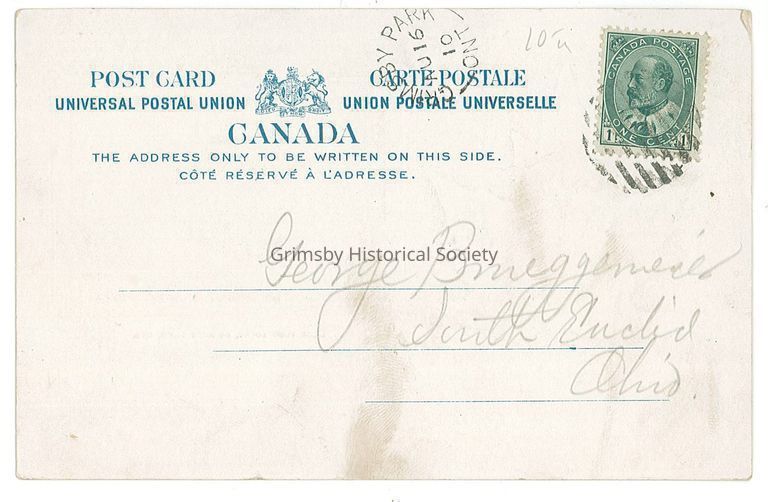 POST CARD
CARTE POSTALE
UNIVERSAL POSTAL UNION
UNION POSTALE UNIVERSELLE
CANADA
THE ADDRESS ONLY TO BE WRITTEN ON THIS SIDE.
CÔTÉ RÉSERVÉ À L'ADRESSE.
GRIMSBY PARK
ONT
16
10
CANADA POSTAGE
1 ONE CENT 1
Grimsby Historical Society
George Brueggemeier
South Euclid
Ohio.